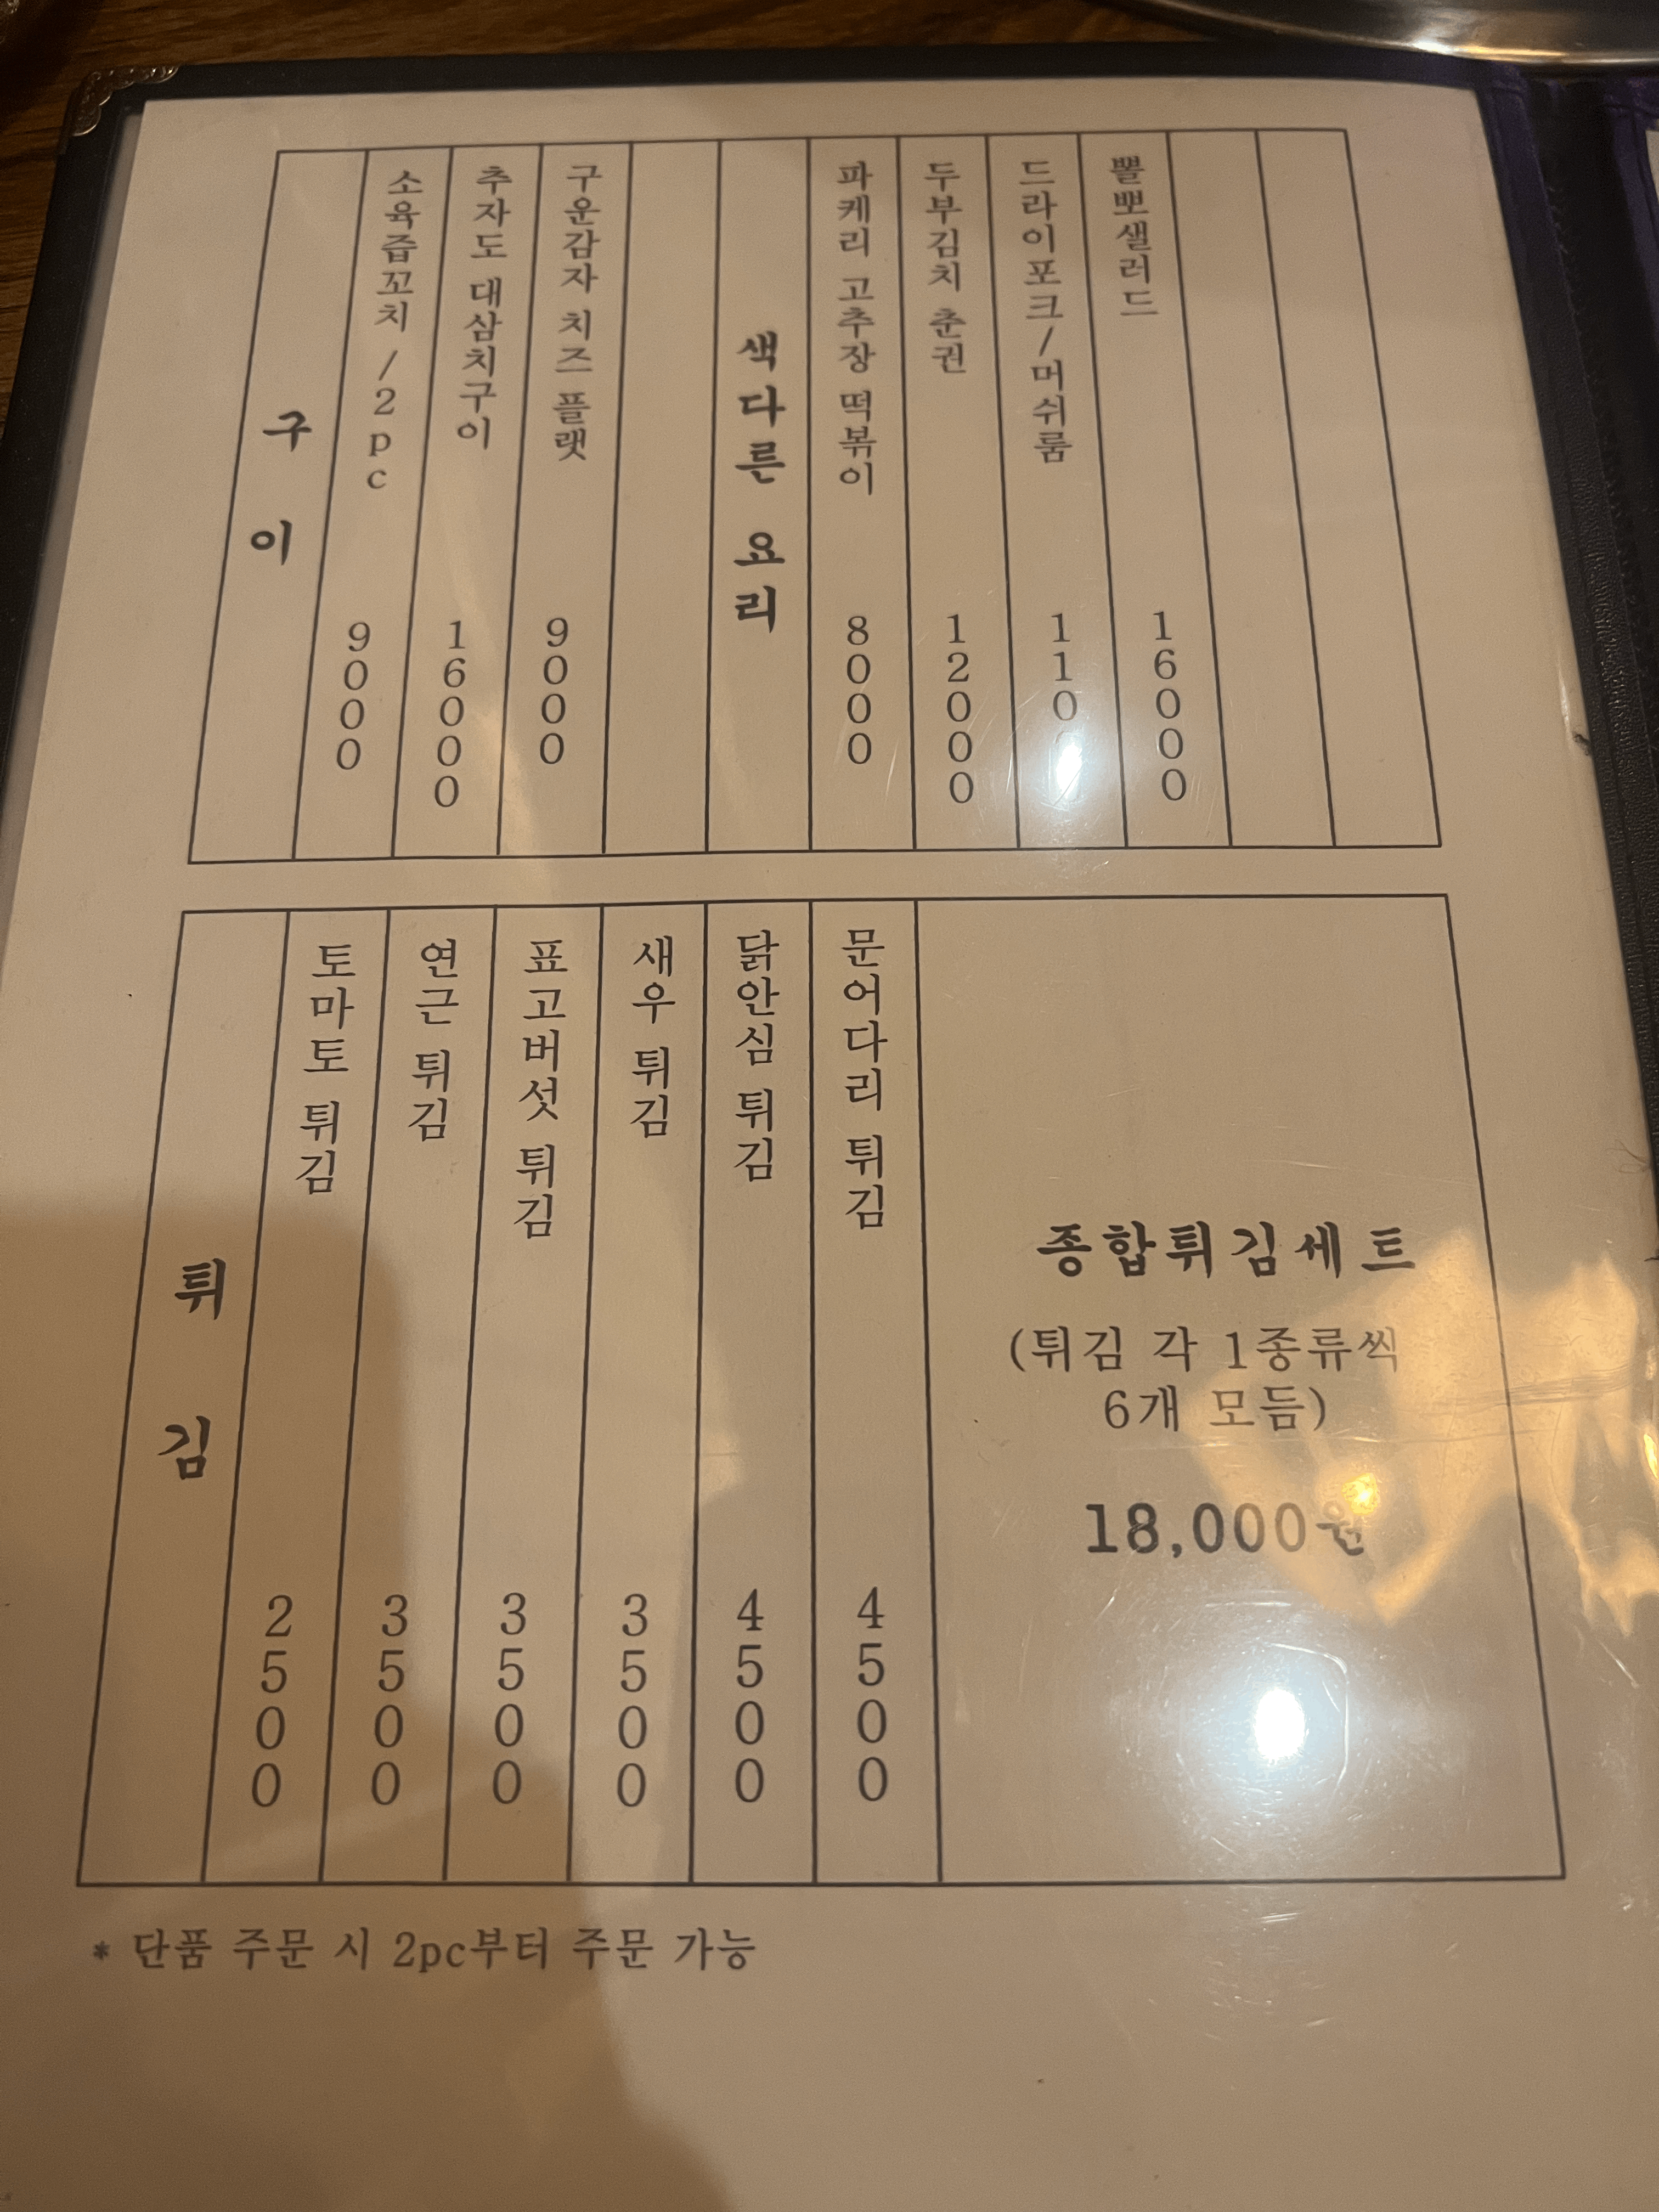 구이
소육즙꼬치 /2pc 9000
추자도 대삼치구이 16000
구운감자 치즈 플랫 9000
색다른 요리
파케리 고추장 떡볶이 8000
두부김치 춘권 12000
드라이포크/머쉬룸
뽈뽀샐러드 16000
튀김
토마토 튀김 2500
연근 튀김 3500
표고버섯 튀김 3500
새우 튀김 3500
닭안심 튀김 4500
문어다리 튀김 4500
종합튀김세트
(튀김 각 1종류씩
6개 모듬)
18,000원
* 단품 주문 시 2pc부터 주문 가능